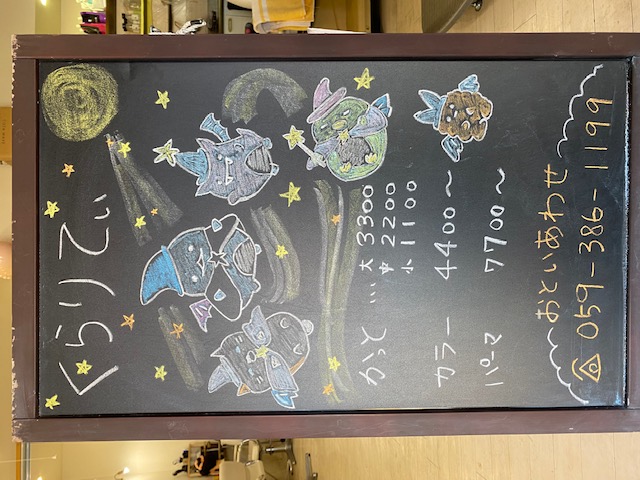 くらりてぃ
かっと … 大 3300
中 2200
小 1100
カラー 4400〜
パーマ 7700〜
おといあわせ
059-386-1199